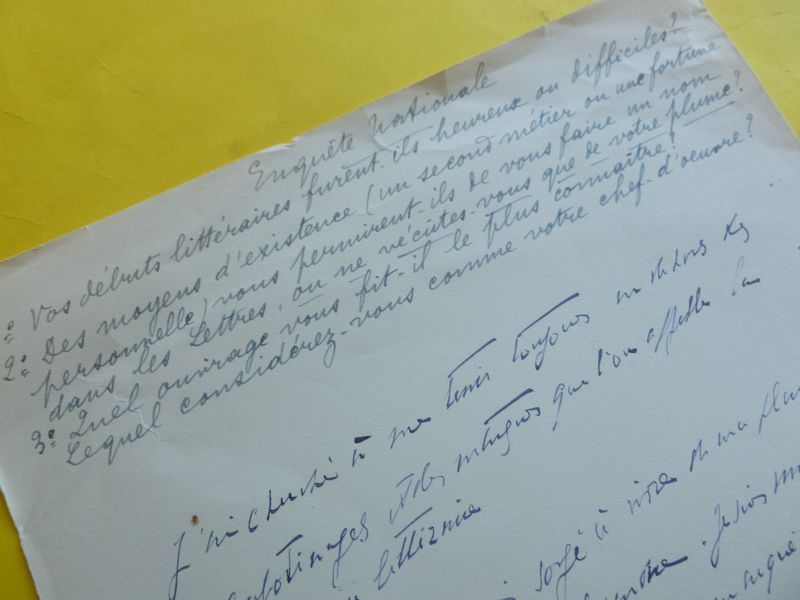 Enquête Nationale
1º: Vos débuts littéraires furent-ils heureux ou difficiles?
2º: Des moyens d'existence (un second métier ou une fortune
personnelle) vous permirent-ils de vous faire un nom
dans les Lettres, ou ne vécûtes-vous que de votre plume?
3º: Quel ouvrage vous fit-il le plus connaître?
Lequel considérez-vous comme votre chef-d'oeuvre?
J'ai cherché à me tenir toujours en dehors des
que l'on appelle la
littéraire
songé à vivre de ma plume
. Je suis